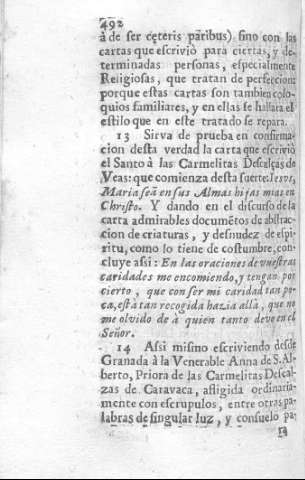 492
à de ser cęteris paribus) sino con las
cartas que escriviò para ciertas, y de-
terminadas personas, especialmente
Religiosas, que tratan de perfeccion:
porque estas cartas son tambien colo-
quios familiares, y en ellas se hallarà el
estilo que en este tratado se repara.
13 Sirva de prueba en confirma-
cion desta verdad la carta que escriviò
el Santo à las Carmelitas Descalças de
Veas: que comienza desta suerte: Iesus,
Maria seã en sus Almas hijas mias en
Christo. Y dando en el discurso de la
carta admirables documẽtos de abstrac-
cion de criaturas, y desnudez de espi-
ritu, como lo tiene de costumbre, con-
cluye assi: En las oraciones de vuestras
caridades me encomiendo, y tengan por
cierto, que con ser mi caridad tan po-
ca, està tan recogida hazia allà, que no
me olvido de à quien tanto deve en el
Señor.
14 Assi mismo escriviendo desde
Granada à la Venerable Anna de S. Al-
berto, Priora de las Carmelitas Descal-
zas de Caravaca, afligida ordinaria-
mente con escrupulos, entre otras pa-
labras de singular luz, y consuelo pa-